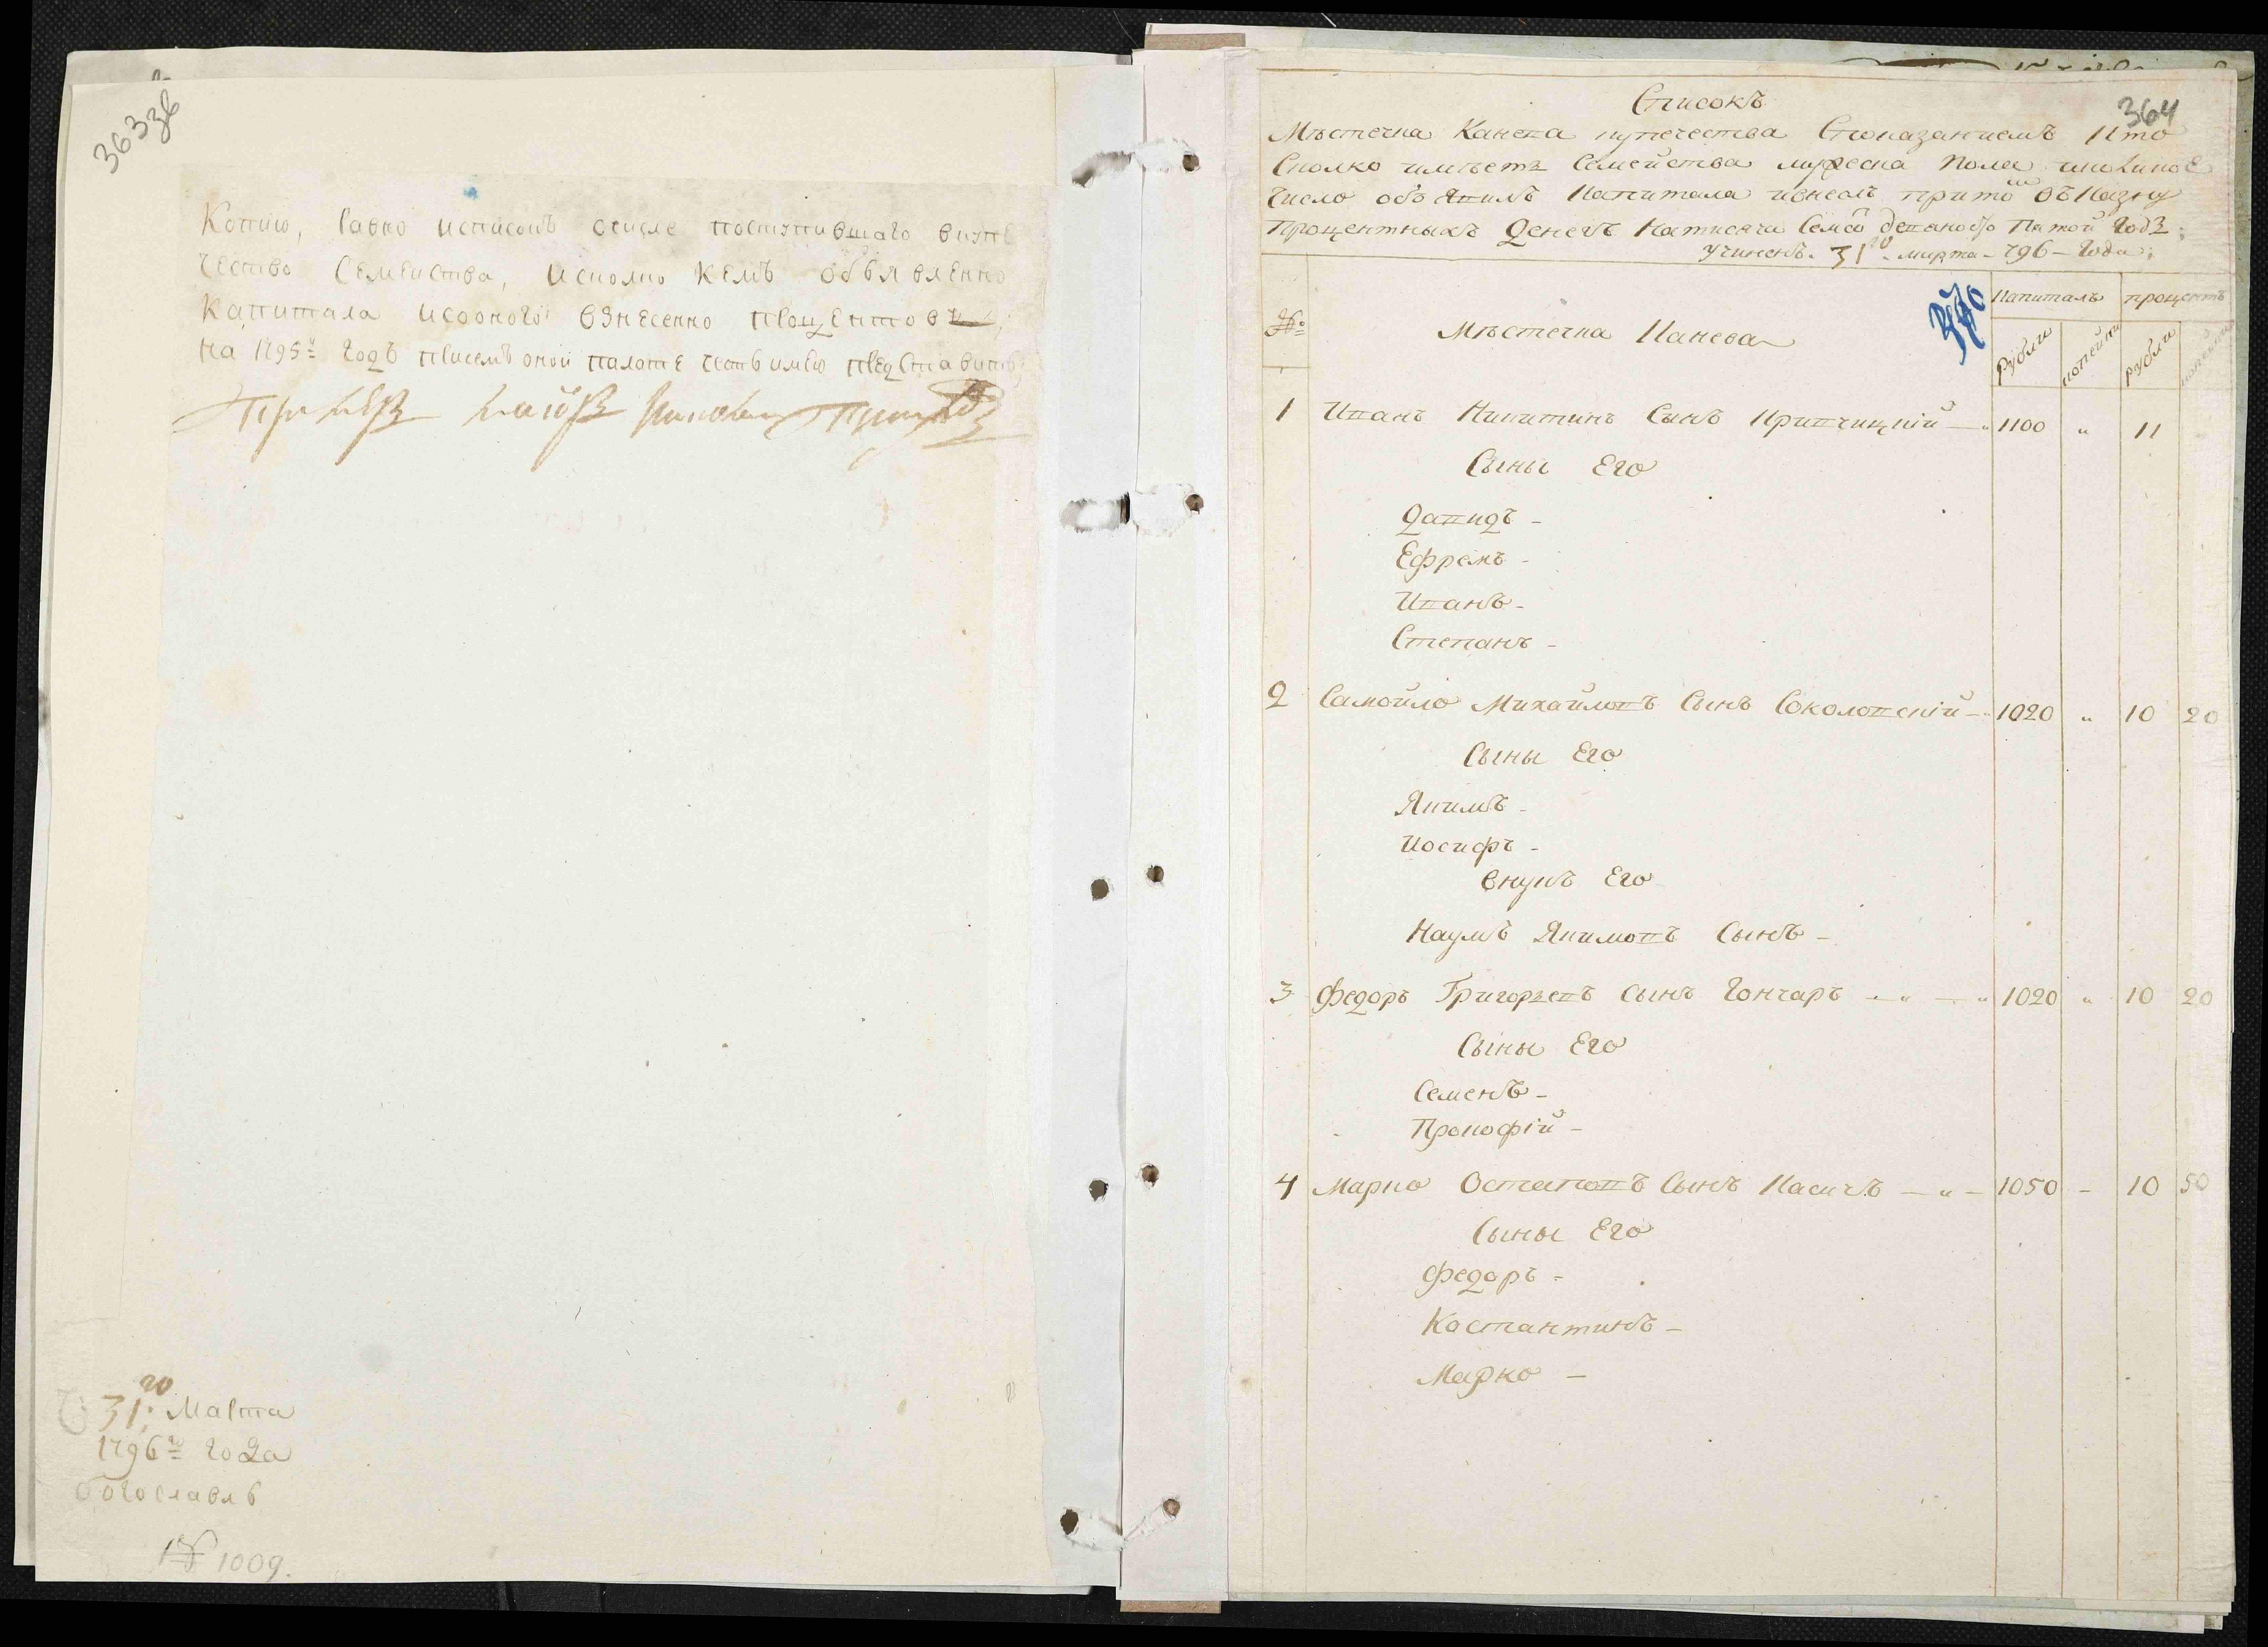 363 зв
Копию, равно исписокъ очисле поступившаго вкупе
чество семейства, исколко кемъ объявленно
капитала исооного взнесенно процентовъ,
на 1795й годъ присемъ оной палате честь имею представить
31го Марта
1796го года
Богославль
№ 1009.
364
Списокъ
Мѣстечка Канева купечества Споказаниемъ Кто
Сколко имѣетъ Семейства мужеска пола иколикое
Число объявилъ Капитала ионсаго при томъ въ Казну
Процентныхъ Денегъ Натисяча Семсо девяносто Пятой годъ;
Учиненъ. 31го марта 796 года;
№
Мѣстечка Канева
Капиталъ
процентъ
рубли
копейки
рубли
копейки
1 Иванъ Никитинъ Сынъ Кривчицкій 1100 " 11
Сыны Его
Давидъ -
Ефремъ -
Иванъ -
Степанъ -
2 Самойло Михайловъ Сынъ Соколовскій 1020 " 10 20
Сыны Его
Якимъ -
Иосифъ -
Внукъ Его
Наумъ Якимовъ Сынъ -
3 Федоръ Григорьевъ Сынъ Гончаръ 1020 " 10 20
Сыны Его
Семенъ -
Прокофій -
4 Марко Остаповъ Сынъ Касичъ 1050 - 10 50
Сыны Его
Федоръ -
Костантинъ -
Марко -